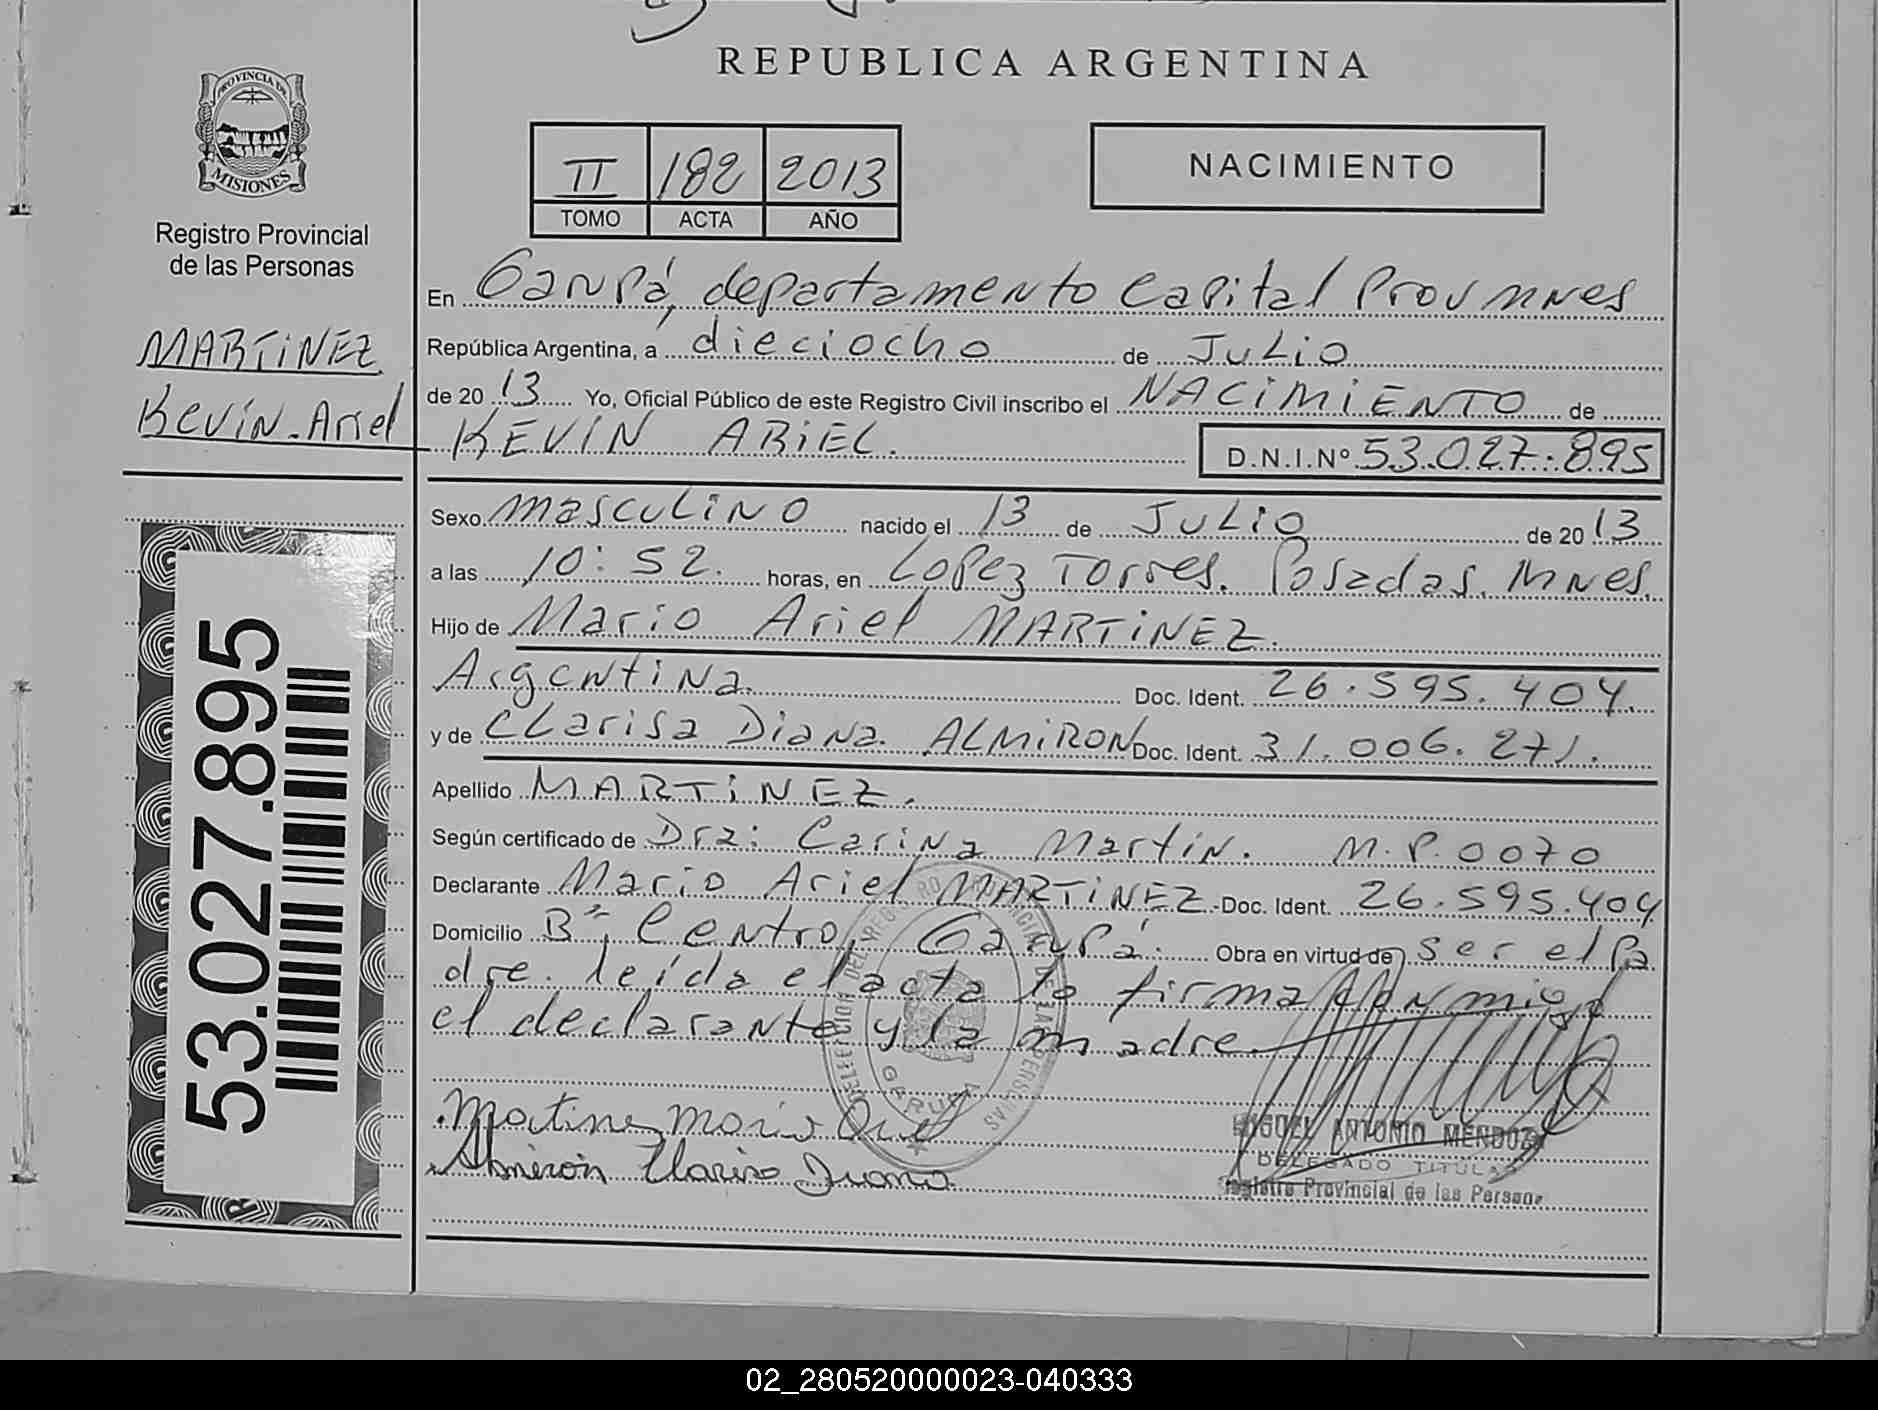 REPUBLICA ARGENTINA
PROVINCIA DE
MISIONES
Registro Provincial
de las Personas
II 182 2013
TOMO ACTA AÑO
NACIMIENTO
MARTINEZ
Kevin Ariel
En Garupá, departamento Capital Prov Mnes
República Argentina, a dieciocho de JULIO
de 20 13 Yo, Oficial Público de este Registro Civil inscribo el NACIMIENTO de
KEVIN ARIEL. D.N.I.Nº 53.027.895
Sexo masculino nacido el 13 de JULIO de 20 13
a las 10:52. horas, en Lopez Torres. Posadas. Mnes.
Hijo de Mario Ariel MARTINEZ.
Argentina. Doc. Ident. 26.595.404.
y de Clarisa Diana ALMIRON Doc. Ident. 31.006.271.
Apellido MARTINEZ.
Según certificado de Dra: Carina Martin. M.P. 0070
Declarante Mario Ariel MARTINEZ Doc. Ident. 26.595.404
Domicilio Bº Centro, Garupá. Obra en virtud de ser el Pa
dre. leída el acta la firman con migo
el declarante y la madre.
53.027.895
GARUPA
Martinez Mario Ariel
Almirón Clarisa Diana
MIGUEL ANTONIO MENDOZA
DELEGADO TITULAR
Registro Provincial de las Persona
02_280520000023-040333